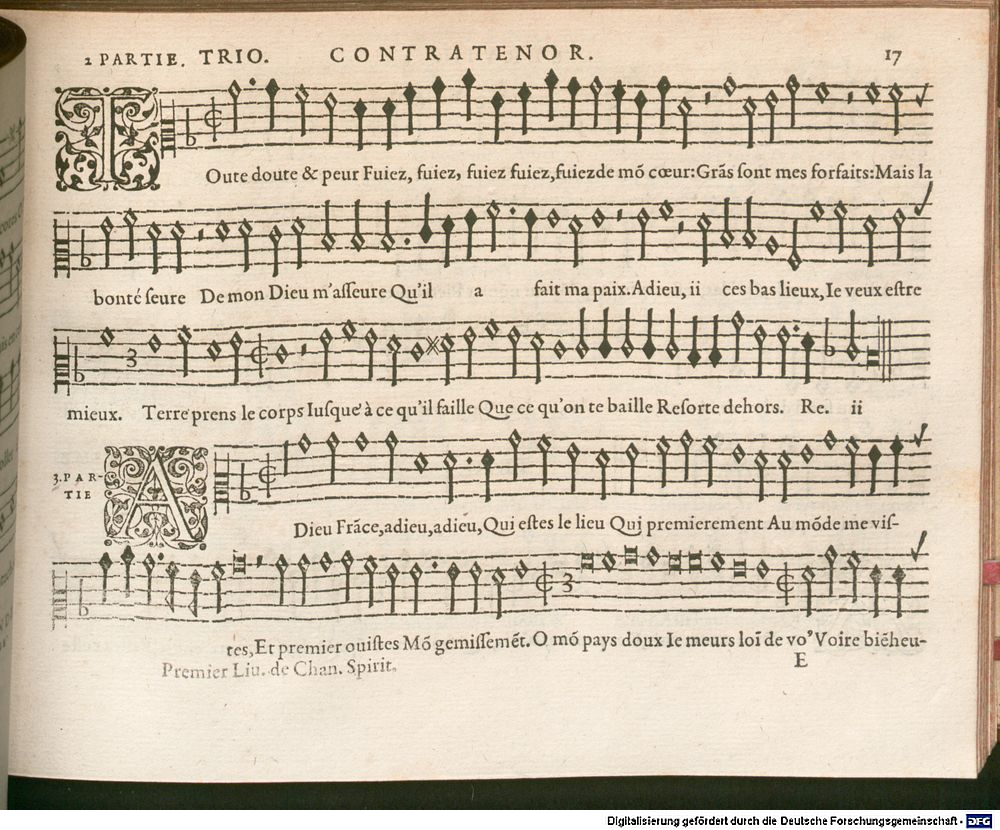 2 PARTIE. TRIO. CONTRATENOR. 17
TOute doute & peur Fuiez, fuiez, fuiez fuiez,fuiezde mō cœur:Grās sont mes forfaits:Mais la
bonté seure De mon Dieu m'asseure Qu'il a fait ma paix.Adieu, ii ces bas lieux,Ie veux estre
3
mieux. Terre prens le corps Iusque' à ce qu'il faille Que ce qu'on te baille Resorte dehors. Re. ii
3. PAR-
TIE
ADieu Frāce,adieu,adieu,Qui estes le lieu Qui premierement Au mōde me vis-
3
tes,Et premier ouistes Mō gemissemēt.O mō pays doux Ie meurs loī de vo' Voire biēheu-
Premier Liu. de Chan. Spirit. E
Digitalisierung gefördert durch die Deutsche Forschungsgemeinschaft - DFG